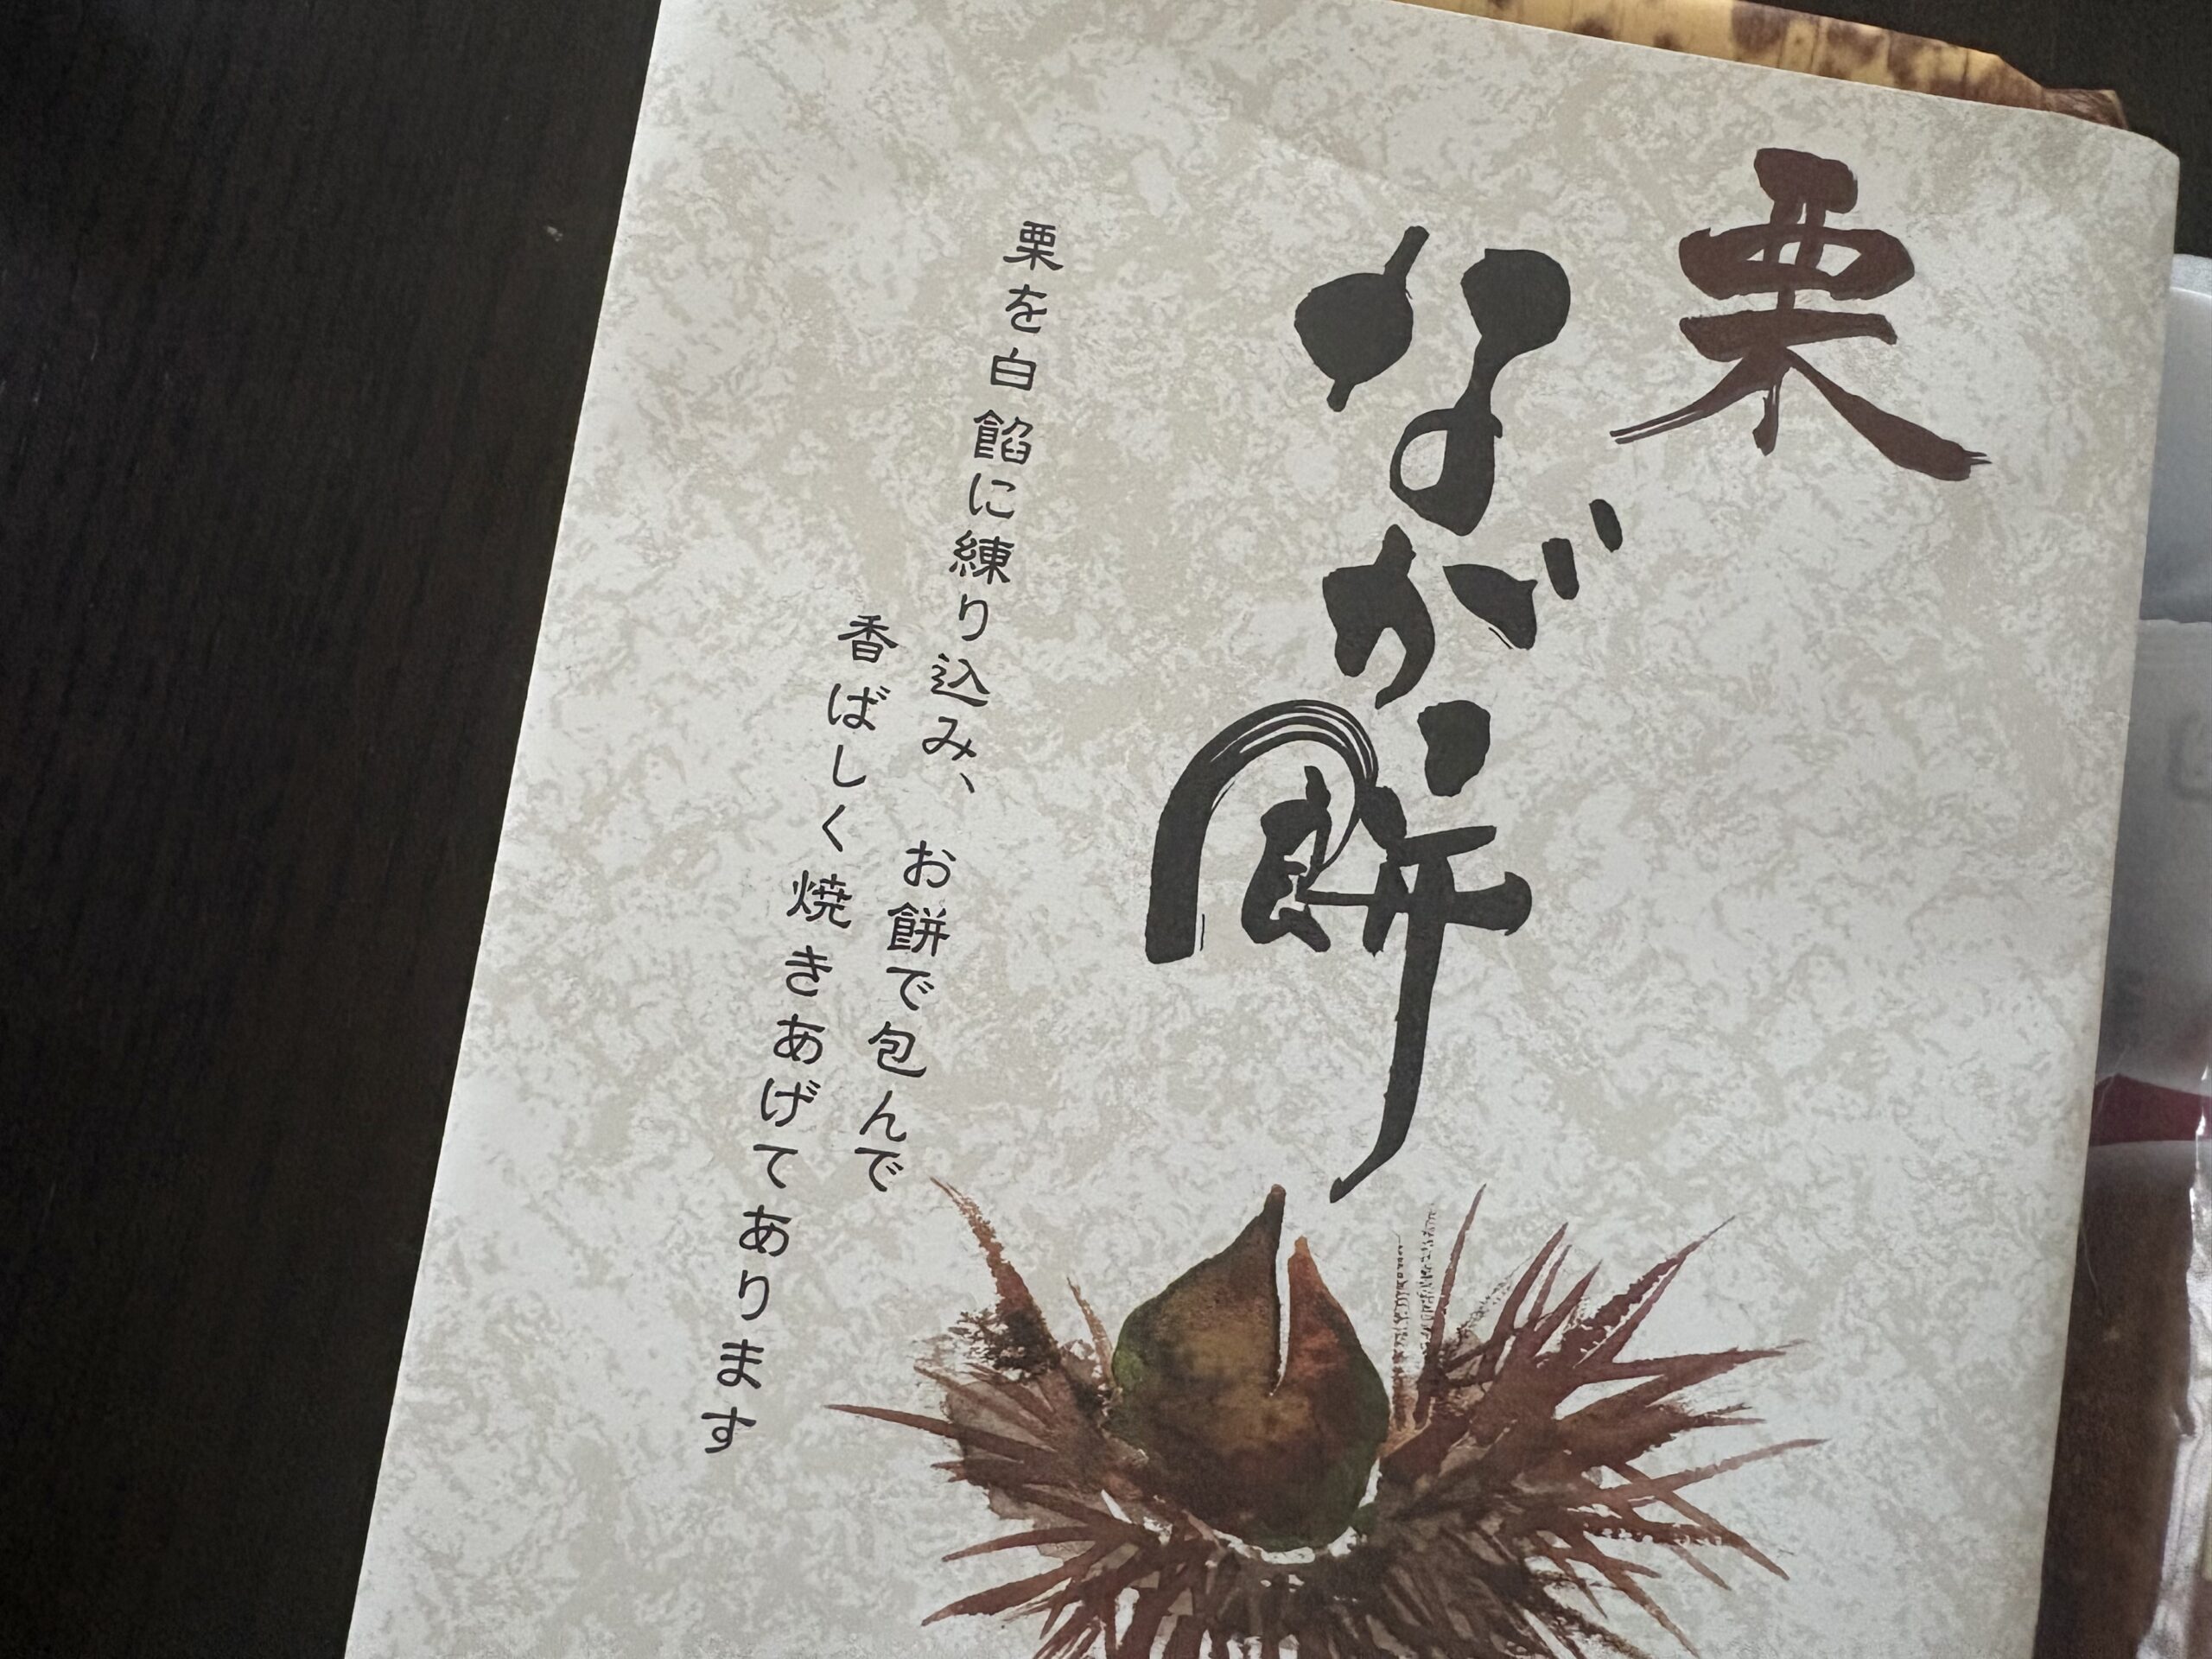 栗
なが餅
栗を白餡に練り込み、お餅で包んで
香ばしく焼きあげてあります